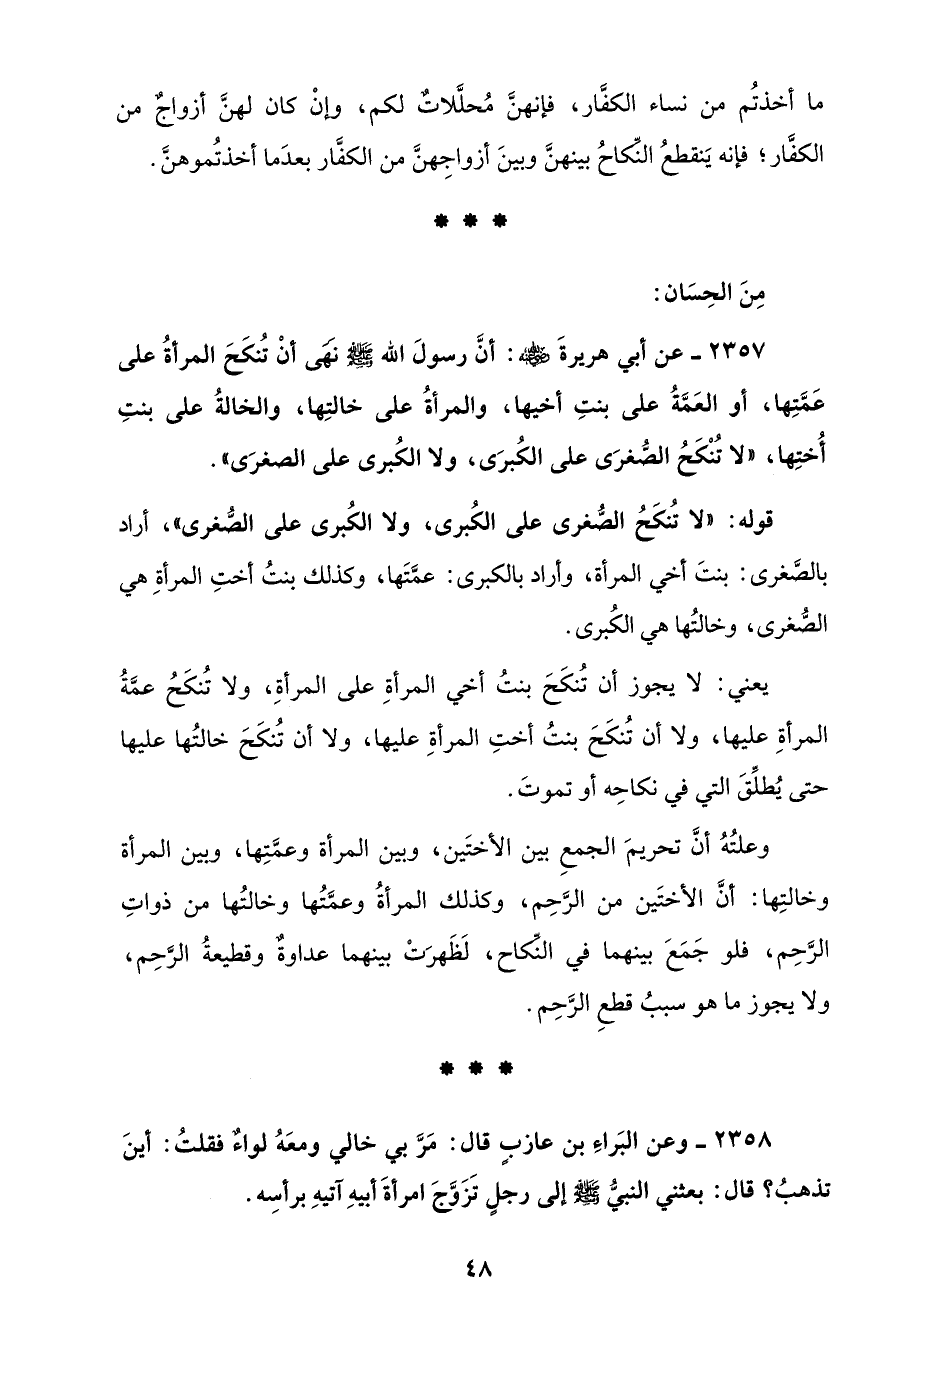 ما أخذتُم من نساء الكفَّار، فإنهنَّ مُحلَّلاتٌ لكم، وإنْ كان لهنَّ أزواجٌ من
الكفَّار؛ فإنه يَنقطعُ النِّكاحُ بينهنَّ وبينَ أزواجِهنَّ من الكفَّار بعدَما أخذتُموهنَّ.
* * *
مِنَ الحِسَان:
٢٣٥٧ ـ عن أبي هريرةَ ﵁: أنَّ رسولَ الله ﷺ نهَى أنْ تُنكَحَ المرأةُ على
عَمَّتِها، أو العَمَّةُ على بنتِ أخيها، والمرأةُ على خالتِها، والخالةُ على بنتِ
أُختِها، «لا تُنْكَحُ الصُّغرَى على الكُبرَى، ولا الكُبرى على الصغرَى».
قوله: «لا تُنكَحُ الصُّغرى على الكُبرى، ولا الكُبرى على الصُّغرى»، أراد
بالصَّغرى: بنتَ أخي المرأة، وأراد بالكبرى: عمَّتَها، وكذلك بنتُ أختِ المرأةِ هي
الصُّغرى، وخالتُها هي الكُبرى.
يعني: لا يجوز أن تُنكَحَ بنتُ أخي المرأةِ على المرأةِ، ولا تُنكَحُ عمَّةُ
المرأةِ عليها، ولا أن تُنكَحَ بنتُ أختِ المرأةِ عليها، ولا أن تُنكَحَ خالتُها عليها
حتى يُطلِّقَ التي في نكاحِه أو تموتَ.
وعلتُهُ أنَّ تحريمَ الجمعِ بين الأختَين، وبين المرأة وعمَّتِها، وبين المرأة
وخالتِها: أنَّ الأختَين من الرَّحِم، وكذلك المرأةُ وعمَّتُها وخالتُها من ذواتِ
الرَّحِم، فلو جَمَعَ بينهما في النِّكاح، لَظَهرَتْ بينهما عداوةٌ وقطيعةُ الرَّحِم،
ولا يجوز ما هو سببُ قطعِ الرَّحِم.
* * *
٢٣٥٨ ـ وعن البَراءِ بن عازبٍ قال: مَرَّ بي خالي ومعَهُ لواءٌ فقلتُ: أينَ
تذهبُ؟ قال: بعثني النبيُّ ﷺ إلى رجلٍ تَزَوَّجَ امرأةَ أبيهِ آتيهِ برأسِه.
٤٨